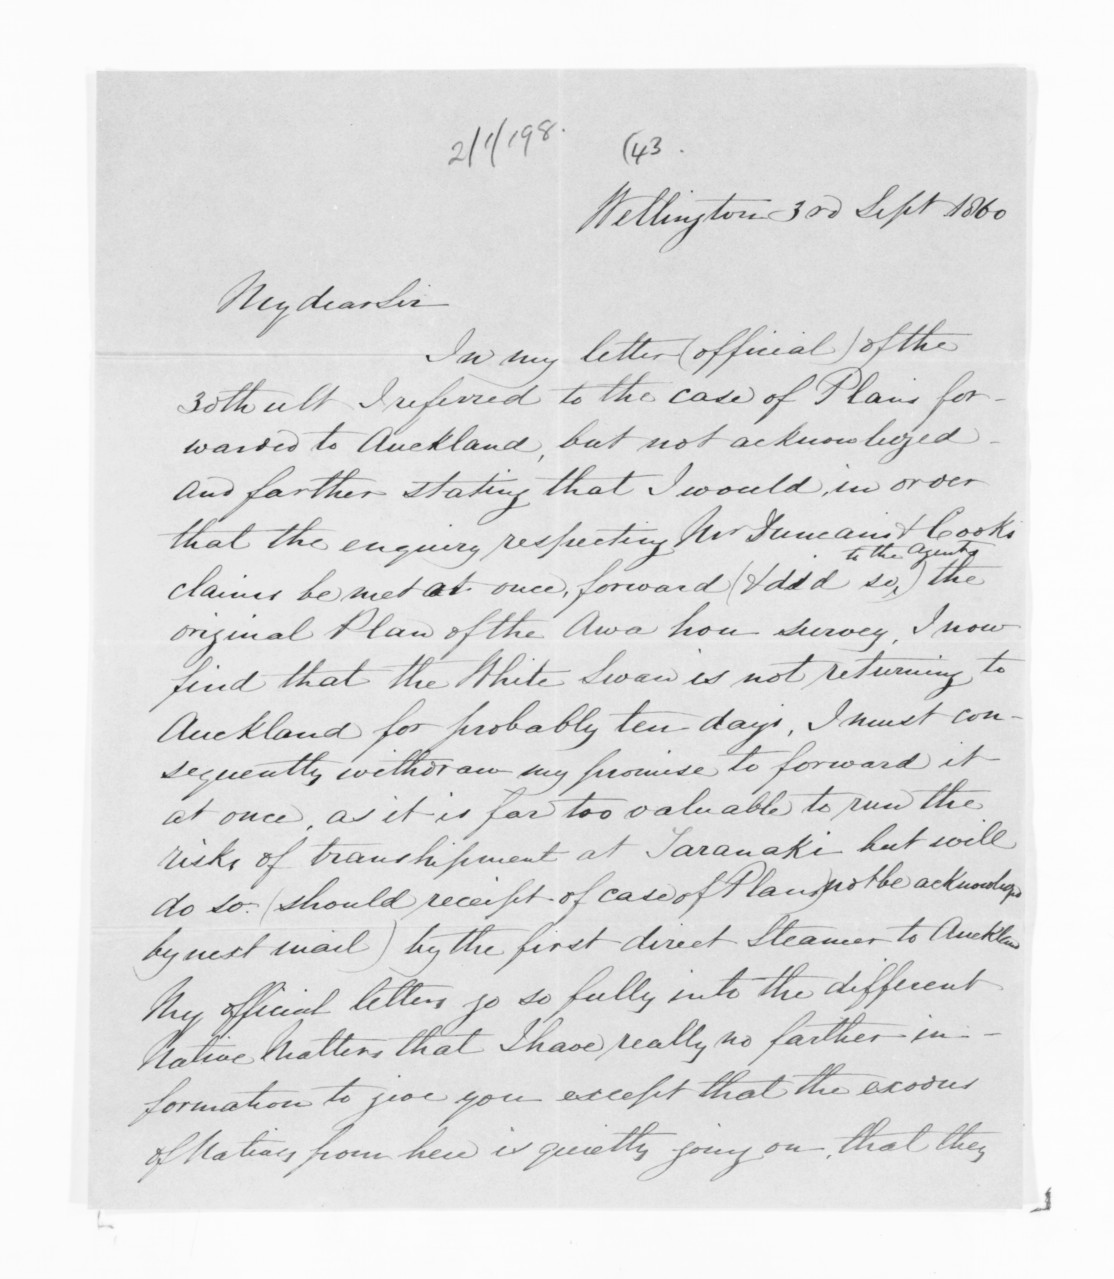 2/1/198.
(43.
Wellington 3rd Sept 1860
My dear Sir
In my letter (official) of the
30th ult I referred to the case of Plans for-
warded to Auckland, but not acknowledged -
and farther stating that I would, in order
that the enquiry respecting Mr Duncan's & Cooks
to the Agents
claims be met at once, forward (& did so,) the
original Plan of the Awa hou survey, I now
find that the White Swan is not returning to
Auckland for probably ten days, I must con-
sequently withdraw my promise to forward it
at once, as it is far too valuable to run the
risks of transhipment at Taranaki but will
do so (should receipt of case of Plans not be acknowledged
by next mail) by the first direct Steamer to Auckland
My official letters go so fully into the different
Native Matters that I have really no farther in-
formation to give you except that the exodus
of Natives from here is quietly going on, that they